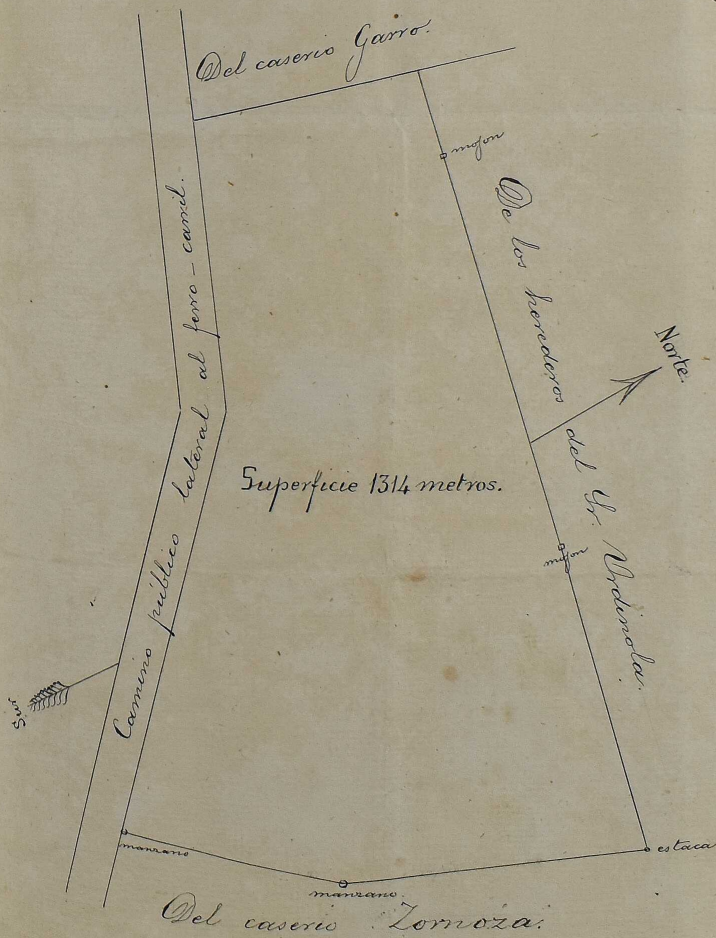 Del caserio Garro.
mojon
De los herederos del Sr. Urdinola.
Norte.
Camino público lateral al ferro-carril.
Superficie 1314 metros.
mojon
Sur.
manzano
manzano.
estaca
Del caserio Zornoza.